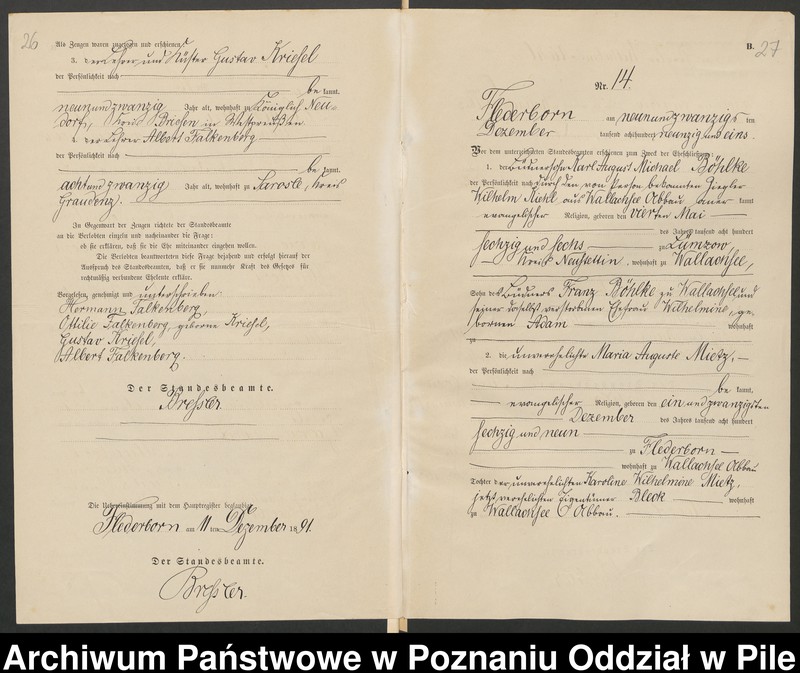 26
Als Zeugen waren zugezogen und erschienen:
3. der Lehrer und Küster Gustav Kriesel
der Persönlichkeit nach
be kannt,
neunundzwanzig Jahr alt, wohnhaft zu Königlich Neu-
dorf, Kreis Briesen in Westpreußen
4. der Lehrer Albert Falkenberg
der Persönlichkeit nach
be kannt,
achtundzwanzig Jahr alt, wohnhaft zu Sarosle, Kreis
Graudenz.
In Gegenwart der Zeugen richtete der Standesbeamte
an die Verlobten einzeln und nacheinander die Frage:
ob sie erklären, daß sie die Ehe miteinander eingehen wollen.
Die Verlobten beantworteten diese Frage bejahend und erfolgt hierauf der
Ausspruch des Standesbeamten, daß er sie nunmehr kraft des Gesetzes für
rechtmäßig verbundene Eheleute erkläre.
Vorgelesen, genehmigt und unterschrieben
Hermann Falkenberg
Ottilie Falkenberg, geborene Kriesel,
Gustav Kriesel,
Albert Falkenberg.
Der Standesbeamte.
Bressler.
Die Uebereinstimmung mit dem Hauptregister beglaubigt
Flederborn am 11 ten Dezember 1891.
Der Standesbeamte.
Bressler.
B.
27
Nr. 14.
Flederborn am neunundzwanzigsten
Dezember tausend achthundert neunzig und eins.
Vor dem unterzeichneten Standesbeamten erschienen zum Zweck der Eheschließung:
1. der Büdnersohn Karl August Michael Böhlke
der Persönlichkeit nach durch den von Person bekannten Ziegler
Wilhelm Kiehl aus Wallachsee Abbau aner kannt
evangelischer Religion, geboren den vierten Mai
des Jahres tausend acht hundert
sechzig und sechs zu Lümzow,
Kreis Neustettin, wohnhaft zu Wallachsee,
Sohn des Büdners Franz Böhlke zu Wallachsee und
seiner daselbst verstorbenen Ehefrau Wilhelmine, ge-
bornen Adam wohnhaft
zu
2. die unverehelichte Maria Auguste Mietz,
der Persönlichkeit nach
be kannt,
evangelischer Religion, geboren den einundzwanzigsten
Dezember des Jahres tausend acht hundert
sechzig und neun
zu Flederborn
wohnhaft zu Wallachsee Abbau
Tochter der unverehelichten Karoline Wilhelmine Mietz,
jetzt verehelichten Eigentümer Bleck wohnhaft
zu Wallachsee Abbau.
Archiwum Państwowe w Poznaniu Oddział w Pile